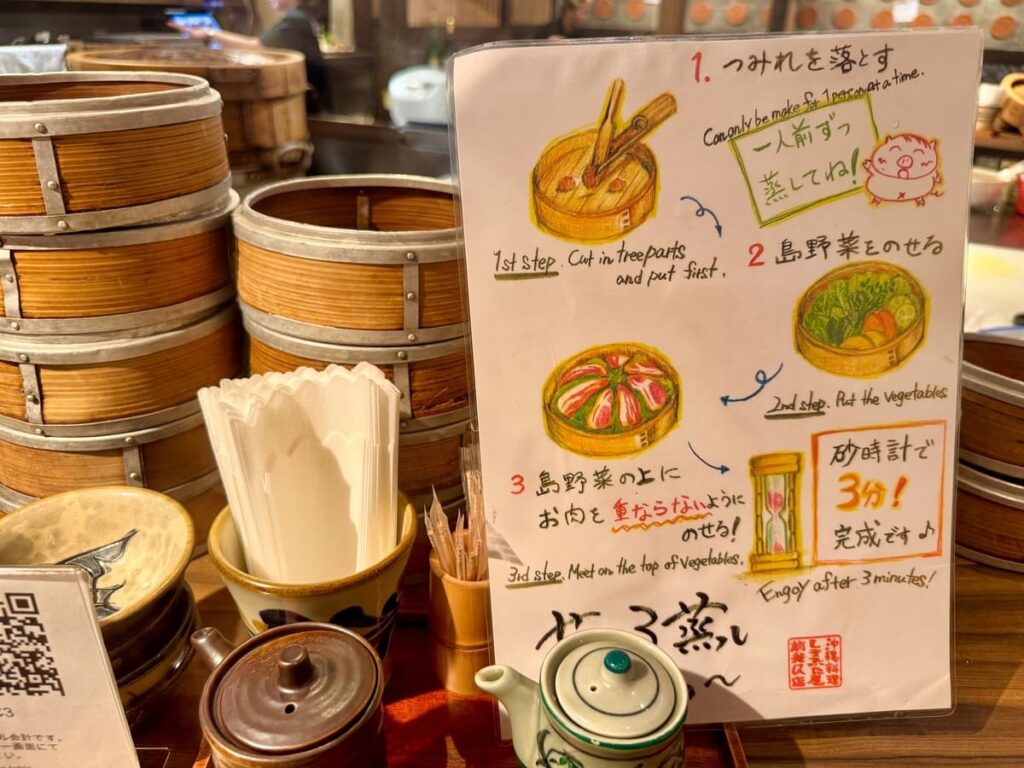 1. つみれを落とす
Can only be make for 1 person at a time.
一人前ずつ
蒸してね!
1st step. Cut in treeparts
and put first.
2 島野菜をのせる
2nd step. Put the vegetables
3 島野菜の上に
お肉を重ならないように
のせる!
3rd step. Meet on the top of vegetables.
砂時計で
3分!
完成です♪
Enjoy after 3 minutes!
蒸し
沖縄料理
ル会計です。